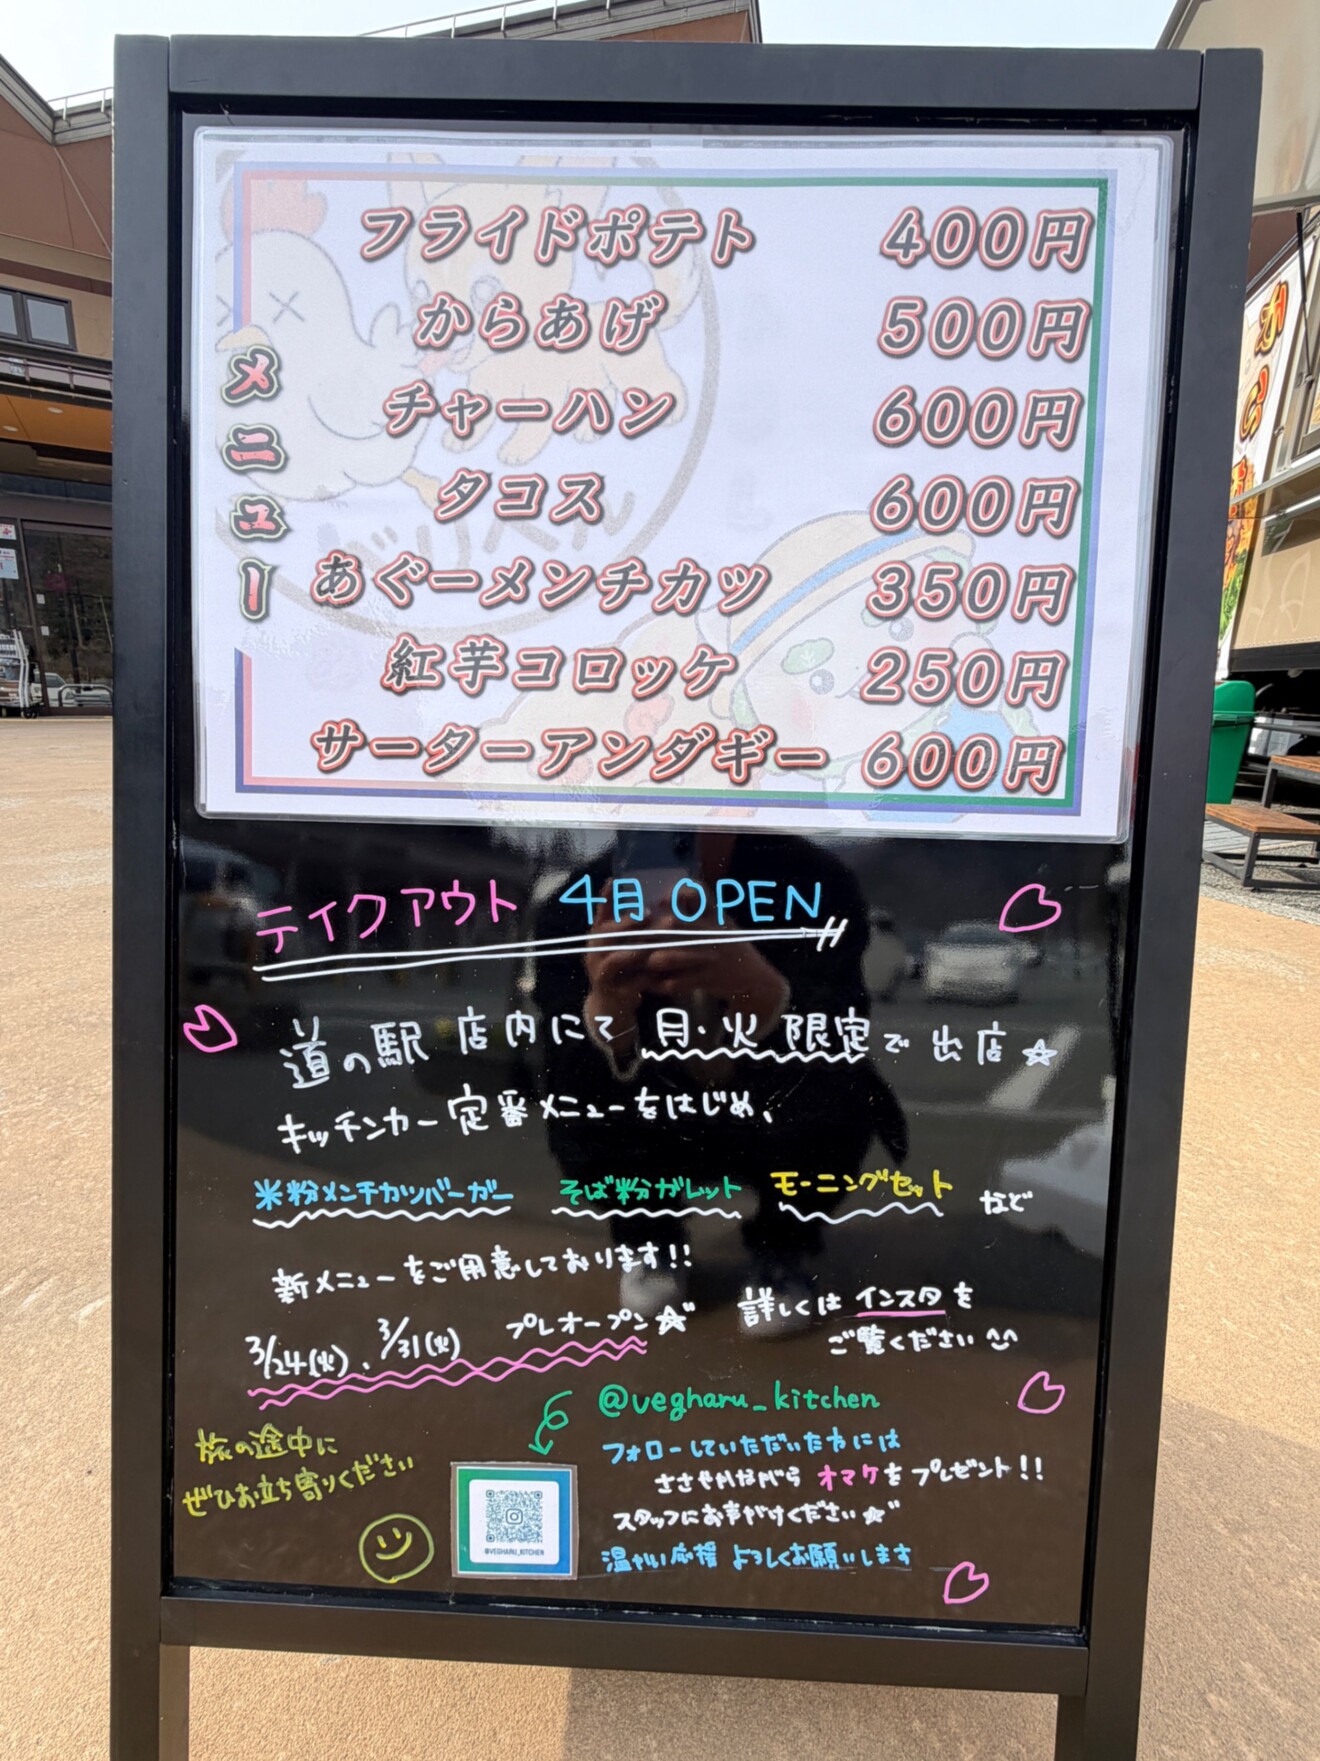 メニュー
フライドポテト 400円
からあげ 500円
チャーハン 600円
タコス 600円
あぐーメンチカツ 350円
紅芋コロッケ 250円
サーターアンダギー 600円
テイクアウト 4月 OPEN
道の駅 店内にて 月・火 限定で 出店☆
キッチンカー定番メニューをはじめ、
米粉メンチカツバーガー そば粉ガレット モーニングセット など
新メニューをご用意しております!!
3/24(火)、3/31(火) プレオープン☆
詳しくは インスタを
ご覧ください
@vegharu_kitchen
フォローしていただいた方には
ささやかながら オマケをプレゼント!!
スタッフにお声がけください☆
温かい応援 よろしくお願いします
旅の途中に
ぜひお立ち寄りください
@VEGHARU_KITCHEN